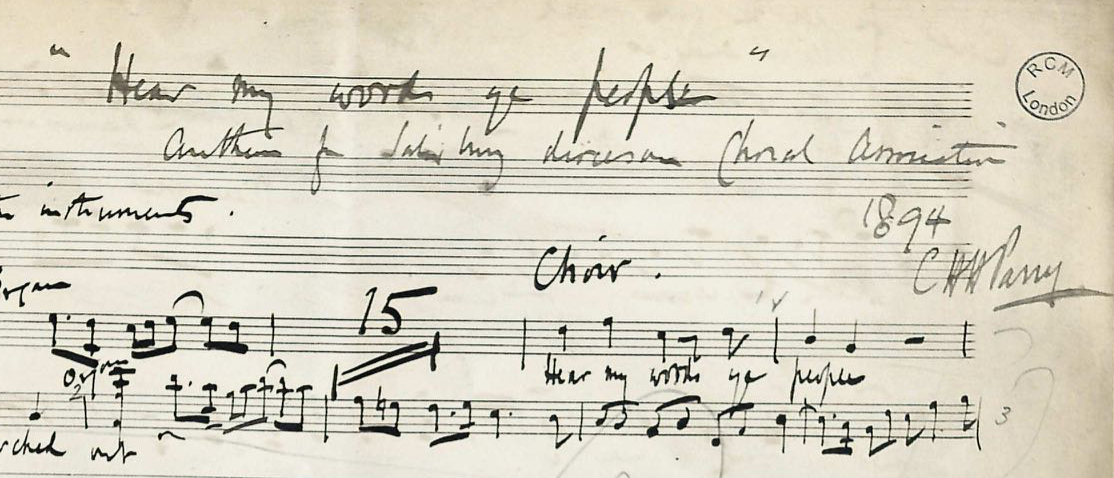 " Hear my words ye people "
RCM
London
Anthem for Salisbury diocesan Choral Association
instruments.
1894
Choir.
CHH Parry
Organ
15
Hear my words ye people
Organ
3
out